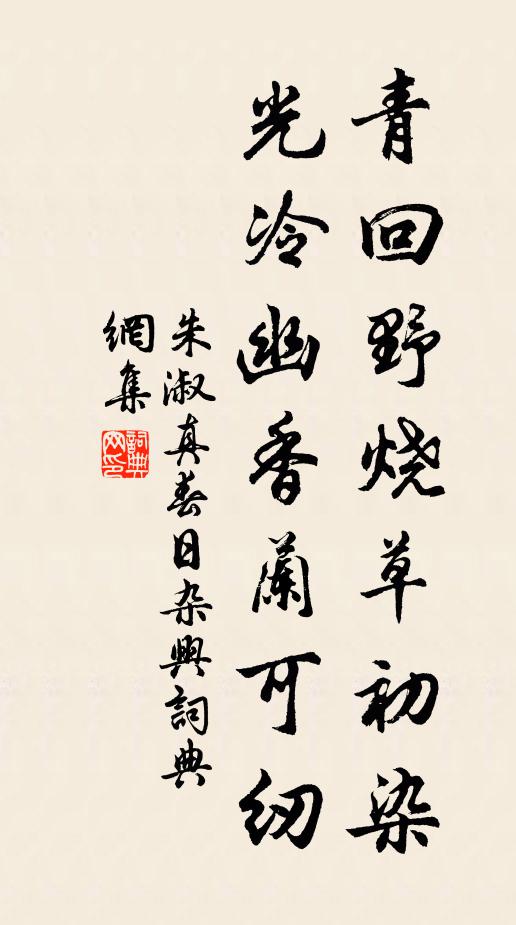 青回野烧草初染
光冷幽香蘭可纫
朱淑真春日杂興詞典
網集
詞典網印